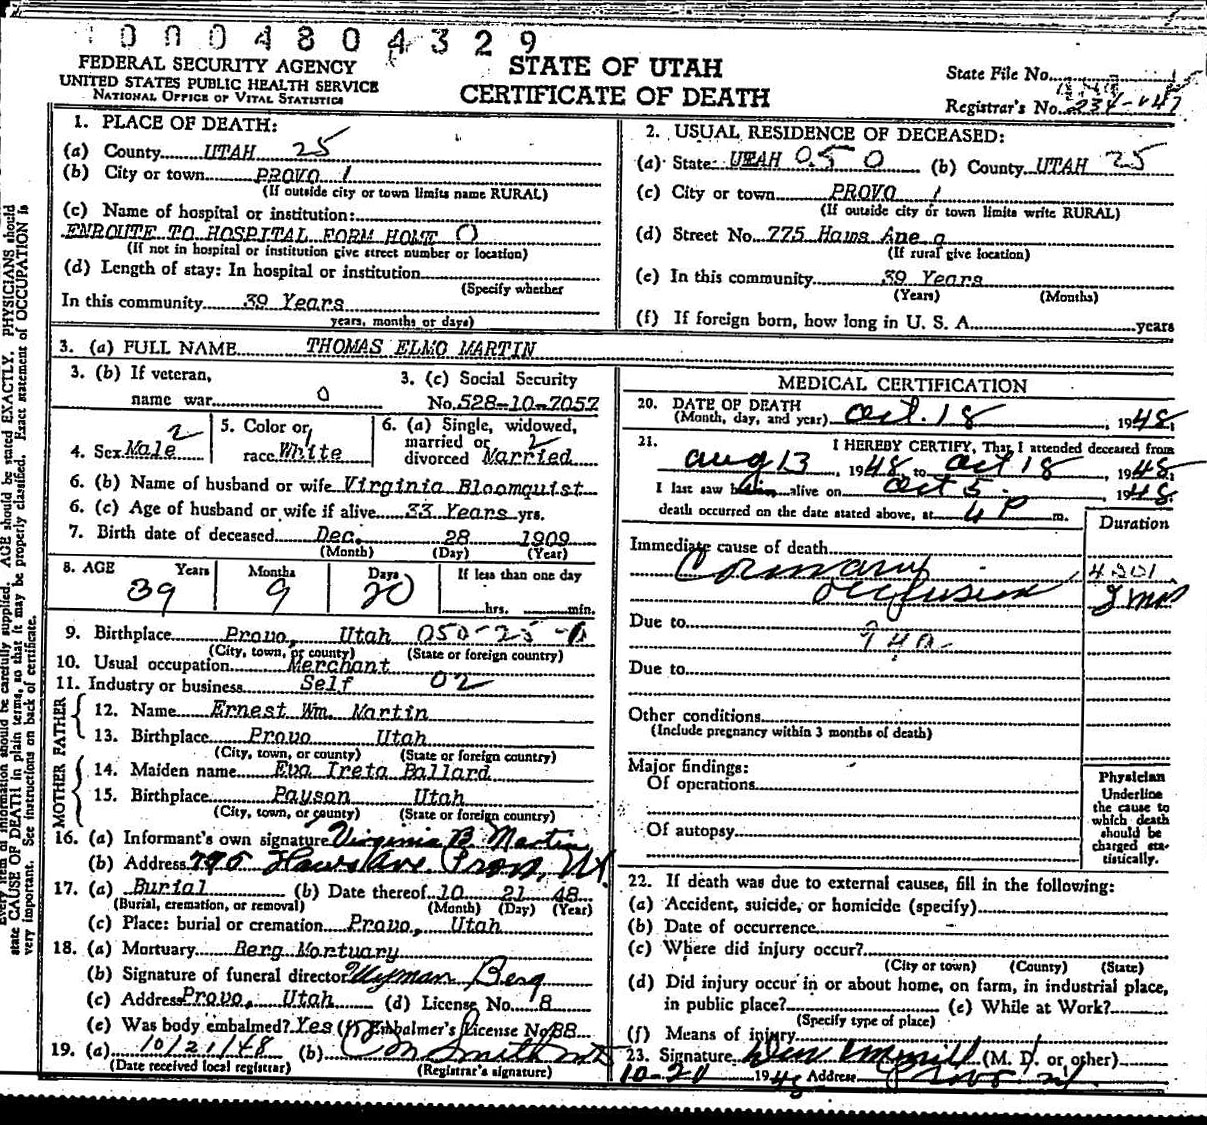 0004804329
FEDERAL SECURITY AGENCY
UNITED STATES PUBLIC HEALTH SERVICE
NATIONAL OFFICE OF VITAL STATISTICS
STATE OF UTAH
CERTIFICATE OF DEATH
State File No.
Registrar's No. 234-147
1. PLACE OF DEATH:
(a) County UTAH 25
(b) City or town PROVO 1
(If outside city or town limits name RURAL)
(c) Name of hospital or institution:
ENROUTE TO HOSPITAL FORM HOME 0
(If not in hospital or institution give street number or location)
(d) Length of stay: In hospital or institution
(Specify whether
In this community 39 Years
years, months or days)
2. USUAL RESIDENCE OF DECEASED:
(a) State UTAH 050 (b) County UTAH 25
(c) City or town PROVO 1
(If outside city or town limits write RURAL)
(d) Street No. 775 Haws Ane
(If rural give location)
(e) In this community 39 Years
(Years) (Months)
(f) If foreign born, how long in U. S. A. years
3. (a) FULL NAME THOMAS ELMO MARTIN
3. (b) If veteran,
name war 0
3. (c) Social Security
No. 528-10-7057
4. Sex Male 2
5. Color or
race White 1
6. (a) Single, widowed,
married or 2
divorced Married
6. (b) Name of husband or wife Virginia Bloomquist
6. (c) Age of husband or wife if alive 33 Years yrs.
7. Birth date of deceased Dec. 28 1909
(Month) (Day) (Year)
8. AGE Years Months Days If less than one day
39 9 20 hrs. min.
9. Birthplace Provo, Utah 050-25-0
(City, town, or county) (State or foreign country)
10. Usual occupation Merchant
11. Industry or business Self 02
FATHER
12. Name Ernest Wm. Martin
13. Birthplace Provo Utah
(City, town, or county) (State or foreign country)
MOTHER
14. Maiden name Eva Ireta Ballard
15. Birthplace Payson Utah
(City, town, or county) (State or foreign country)
16. (a) Informant's own signature Virginia B. Martin
(b) Address 795 Haws Ave. Provo, Ut.
17. (a) Burial (b) Date thereof 10 21 48
(Burial, cremation, or removal) (Month) (Day) (Year)
(c) Place: burial or cremation Provo, Utah
18. (a) Mortuary Berg Mortuary
(b) Signature of funeral director Wyman Berg
(c) Address Provo, Utah (d) License No. 8
(e) Was body embalmed? Yes (f) Embalmer's License No. 88
19. (a) 10/21/48 (b) C M Smith MD
(Date received local registrar) (Registrar's signature)
MEDICAL CERTIFICATION
20. DATE OF DEATH
(Month, day, and year) Oct. 18, 1948.
21. I HEREBY CERTIFY, That I attended deceased from
Aug 13, 1948 to Oct 18, 1948.
I last saw him alive on Oct 5, 1948.
death occurred on the date stated above, at 4 P m.
Duration
Immediate cause of death
Coronary 4201
occlusion 2 mos
Due to 940
Due to
Other conditions
(Include pregnancy within 3 months of death)
Major findings:
Of operations
Of autopsy
Physician
Underline
the cause to
which death
should be
charged sta-
tistically.
22. If death was due to external causes, fill in the following:
(a) Accident, suicide, or homicide (specify)
(b) Date of occurrence
(c) Where did injury occur?
(City or town) (County) (State)
(d) Did injury occur in or about home, on farm, in industrial place,
in public place? (e) While at Work?
(Specify type of place)
(f) Means of injury
23. Signature (M. D. or other)
10-20 1948 Address Provo Ut.
Every item of information should be carefully supplied. AGE should be stated EXACTLY. PHYSICIANS should
state CAUSE OF DEATH in plain terms, so that it may be properly classified. Exact statement of OCCUPATION is
very important. See instructions on back of certificate.